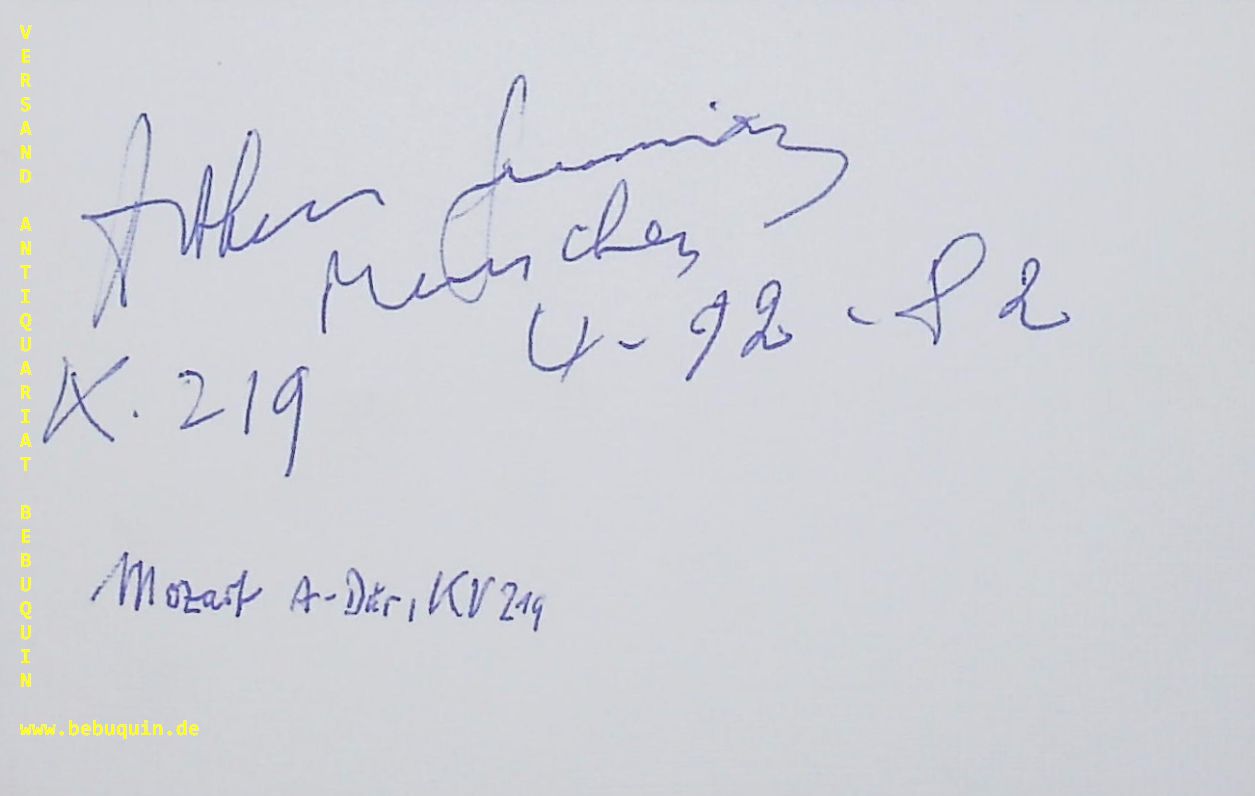 VERSAND ANTIQUARIAT BEBUQUIN
Arthur Grumiaux
München
4-92-82
K. 219
Mozart A-Dur, KV 219
www.bebuquin.de